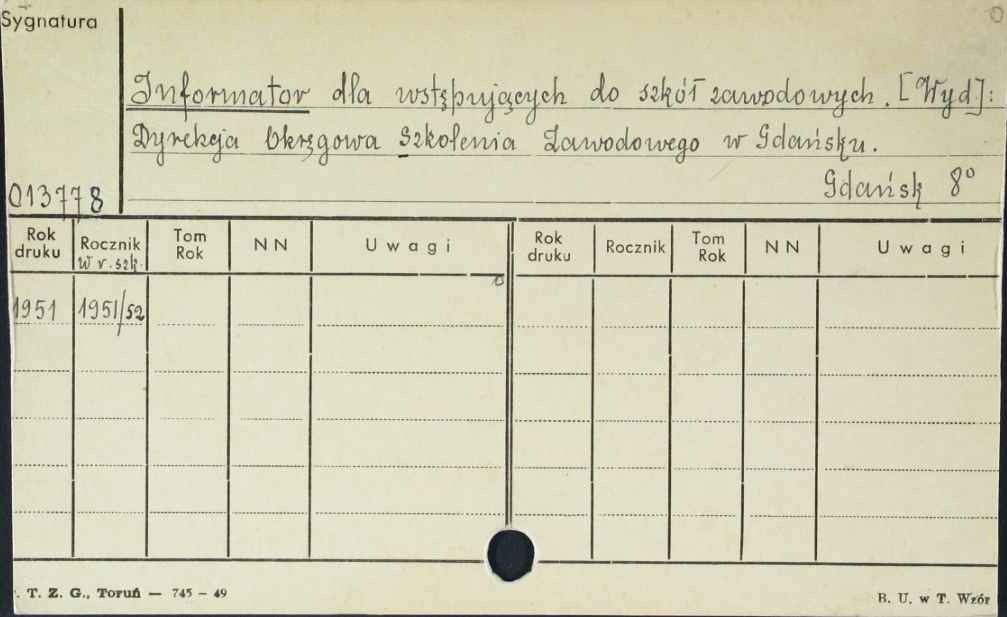 Sygnatura
Informator dla wstępujących do szkół zawodowych. [Wyd.]:
Dyrekcja Okręgowa Szkolenia Zawodowego w Gdańsku.
Gdańsk 8°
013778
Rok druku Rocznik W r. szk. Tom Rok NN Uwagi Rok druku Rocznik Tom Rok NN Uwagi
1951 1951/52
T. Z. G., Toruń — 745 – 49
B. U. w T. Wzór